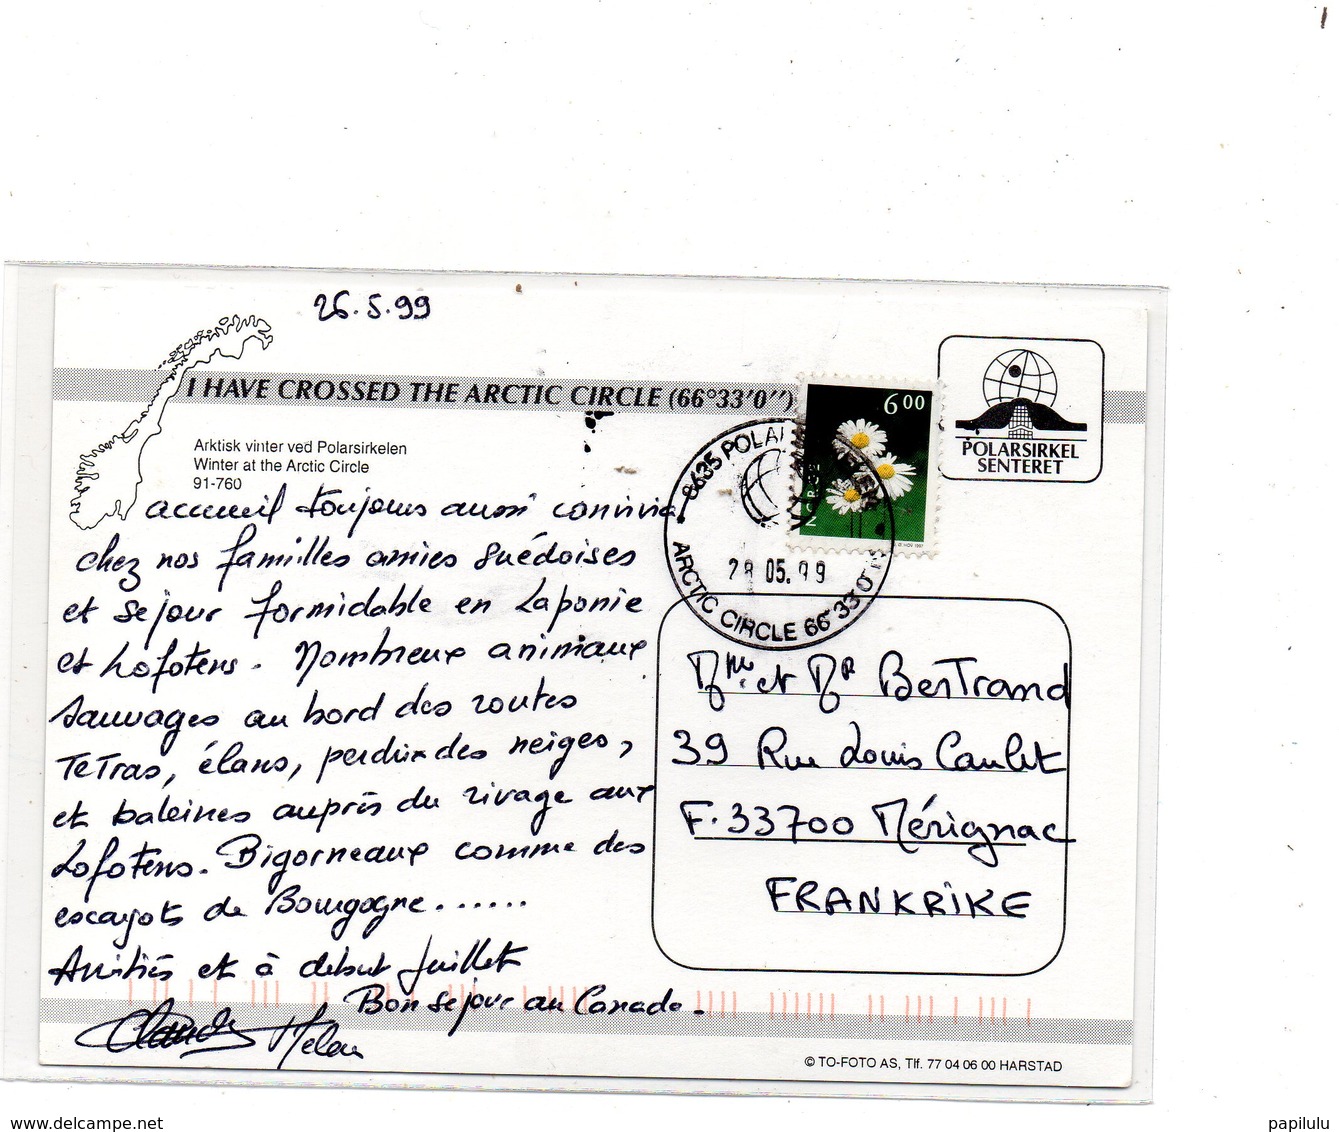 26.5.99
I HAVE CROSSED THE ARCTIC CIRCLE (66°33'0'')
Arktisk vinter ved Polarsirkelen
Winter at the Arctic Circle
91-760
POLARSIRKEL
SENTERET
6 00
8635 POLAR
28 05.99
ARCTIC CIRCLE 66°33'0"
accueil toujours aussi convivial
chez nos familles amies suédoises
et sejour formidable en Laponie
et Lofotens. Nombreux animaux
sauvages au bord des routes
Tetras, élans, perdrix des neiges,
et baleines auprès du rivage aux
Lofotens. Bigorneaux comme des
escargots de Bourgogne......
Amitiés et à debut Juillet
Bon sejour au Canada.
Claude Helen
Mme et Mr Bertrand
39 Rue Louis Caulet
F.33700 Mérignac
FRANKRIKE
© TO-FOTO AS, Tlf. 77 04 06 00 HARSTAD
www.delcampe.net
papilulu